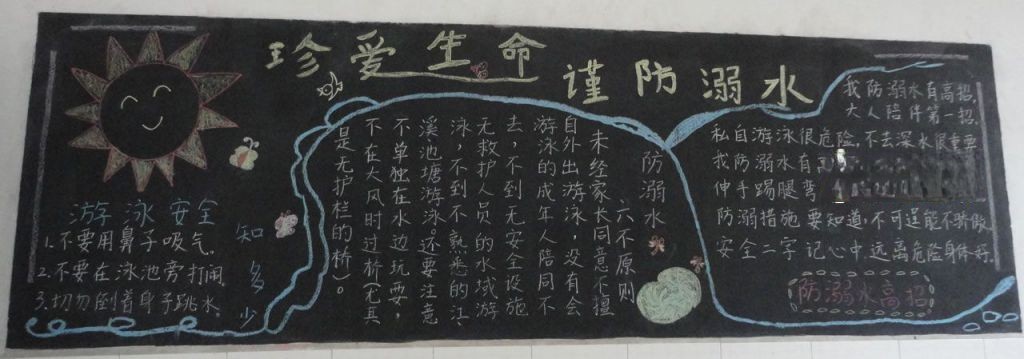 珍爱生命
谨防溺水
游泳安全
知多少
1.不要用鼻子吸气。
2.不要在泳池旁打闹
3.切勿倒着身子跳水。
防溺水
六不原则
未经家长同意不擅
自外出游泳,没有会
游泳的成年人陪同不
去,不到无安全设施
无救护人员的水域游
泳,不到不熟悉的江、
溪池塘游泳。还要注意
不单独在水边玩耍,
不在大风时过桥(尤其
是无护栏的桥)。
我防溺水有高招,
大人陪伴第一招,
私自游泳很危险,不去深水很重要
我防溺水有高
伸手踢腿弯
防溺措施要知道,不可逞能不骄傲
安全二字记心中,远离危险身体好。
防溺水高招